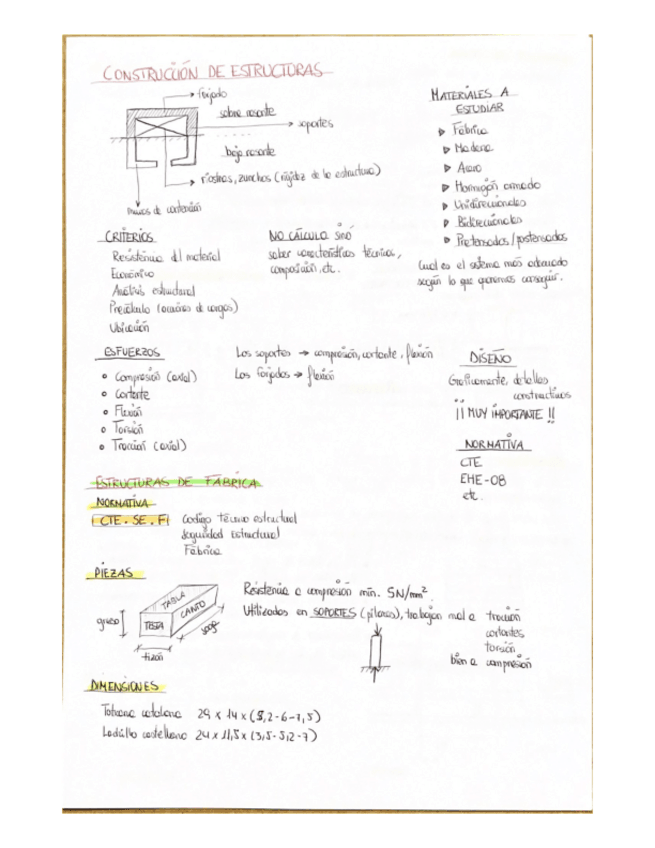 CONSTRUCCIÓN DE ESTRUCTURAS
forjado
sobre rasante
soportes
bajo rasante
riostras, zunchos (rigidez de la estructura)
muros de contención
MATERIALES A
ESTUDIAR
Fábrica
Madera
Acero
Hormigón armado
Unidireccionales
Bidireccionales
Pretensados/postensados
Cual es el sistema más adecuado
según lo que queramos conseguir.
CRITERIOS
Resistencia del material
Económico
Análisis estructural
Precálculo (acciones de cargas)
Ubicación
NO CÁLCULO sinó
saber características técnicas,
composición, etc.
ESFUERZOS
Compresión (axial)
Cortante
Flexión
Torsión
Tracción (axial)
Los soportes → compresión, cortante, flexión
Los forjados → flexión
DISEÑO
Graficamente, detalles
constructivos
¡¡ MUY IMPORTANTE !!
NORMATIVA
CTE
EHE-08
etc.
ESTRUCTURAS DE FÁBRICA
NORMATIVA
CTE. SE. F
Codigo técnico estructural
seguridad estructural
Fábrica
PIEZAS
TABLA
CANTO
TESTA
grueso
soga
tizón
Resistencia a compresión mín. 5N/mm²
Utilizados en SOPORTES (pilares), trabajan mal a tracción
cortantes
torsión
bien a compresión
DIMENSIONES
catalana 29 x 14 x (5,2-6-7,5)
Ladrillo castellano 24 x 11,5 x (3,5-5,2-7)